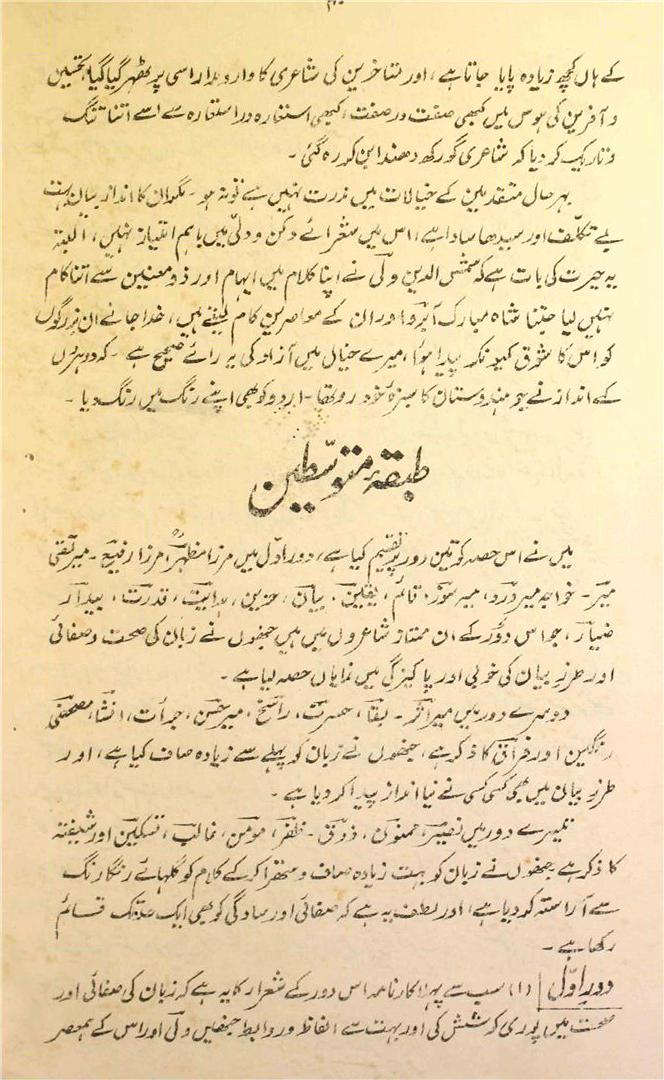 کے ہاں کچھ زیادہ پایا جاتا ہے، اور متاخرین کی شاعری کا دارومدار اسی پر ٹھہر گیا تحسین
و آفرین کی ہوس میں کبھی صفت در صفت، کبھی استعارہ در استعارہ سے اسے اتنا تنگ
و تاریک کر دیا کہ شاعری گورکھ دھندا بن کر رہ گئی۔
بہر حال متقدمین کے خیالات میں ندرت نہیں ہے تو نہ ہو۔ مگر ان کا انداز بیان بہت
بے تکلف اور سیدھا سادا ہے، اس میں شعرائے دکن و دلی میں باہم امتیاز نہیں، البتہ
یہ حیرت کی بات ہے کہ شمس الدین ولی نے اپنا کلام میں ایہام اور ذو معنین سے اتنا کام
نہیں لیا جتنا شاہ مبارک آبرو اور ان کے معاصرین کام لیتے ہیں، خدا جانے ان بزرگوں
کو اس کا شوق کیونکر پیدا ہوا، میرے خیال میں آزاد کی یہ رائے صحیح ہے۔ کہ دوہروں
کے انداز نے جو ہندوستان کا سبزہ خود رو تھا۔ اردو کو بھی اپنے رنگ میں رنگ دیا۔
طبقۂ متوسطین
میں نے اس حصہ کو تین دور پر تقسیم کیا ہے، دور اول میں مرزا مظہر، مرزا رفیع۔ میر تقی
میر۔ خواجہ میر درد، میر سوز، قائم، یقین، بیان، حزین، ہدایت، قدرت، بیدار
ضیاء، جو اس دور کے ان ممتاز شاعروں میں ہیں جنھوں نے زبان کی صحت و صفائی
اور طرز بیان کی خوبی اور پاکیزگی میں نمایاں حصہ لیا ہے۔
دوسرے دور میں میر اثر۔ بقا، حسرت، راسخ، میر حسن، جرأت، انشا، مصحفی
رنگین اور فراق کا ذکر ہے، جنھوں نے زبان کو پہلے سے زیادہ صاف کیا ہے، اور
طرز بیان میں بھی کسی کسی نے نیا انداز پیدا کر دیا ہے۔
تیسرے دور میں نصیر، ممنون، ذوق۔ ظفر، مومن، غالب، تسکین اور شیفتہ
کا ذکر ہے جنھوں نے زبان کو بہت زیادہ صاف و ستھرا کر کے کلام کو گلہائے رنگا رنگ
سے آراستہ کر دیا ہے، اور لطف یہ ہے کہ صفائی اور سادگی کو بھی ایک حد تک قائم
رکھا ہے۔
دور اول (۱) سب سے پہلا کارنامہ اس دور کے شعرا کا یہ ہے کہ زبان کی صفائی اور
صحت میں پوری کوشش کی اور بہت سے الفاظ و روابط جنھیں ولی اور اس کے ہمعصر